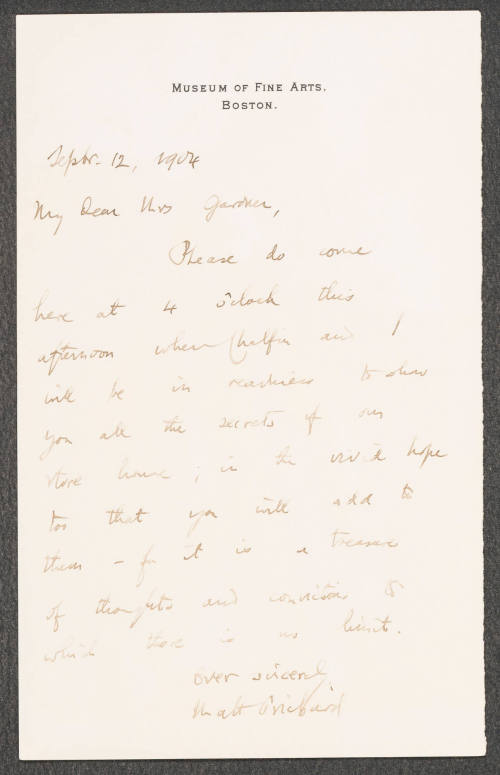 MUSEUM OF FINE ARTS.
BOSTON.
Septbr. 12, 1904
My Dear Mrs Gardner,
Please do come
here at 4 o'clock this
afternoon when Chalfin and I
will be in readiness to show
you all the secrets of our
store house ; in the vivid hope
too that you will add to
them - for it is a treasure
of thoughts and convictions to
which there is no limit.
Ever sincerely
Matt Prichard